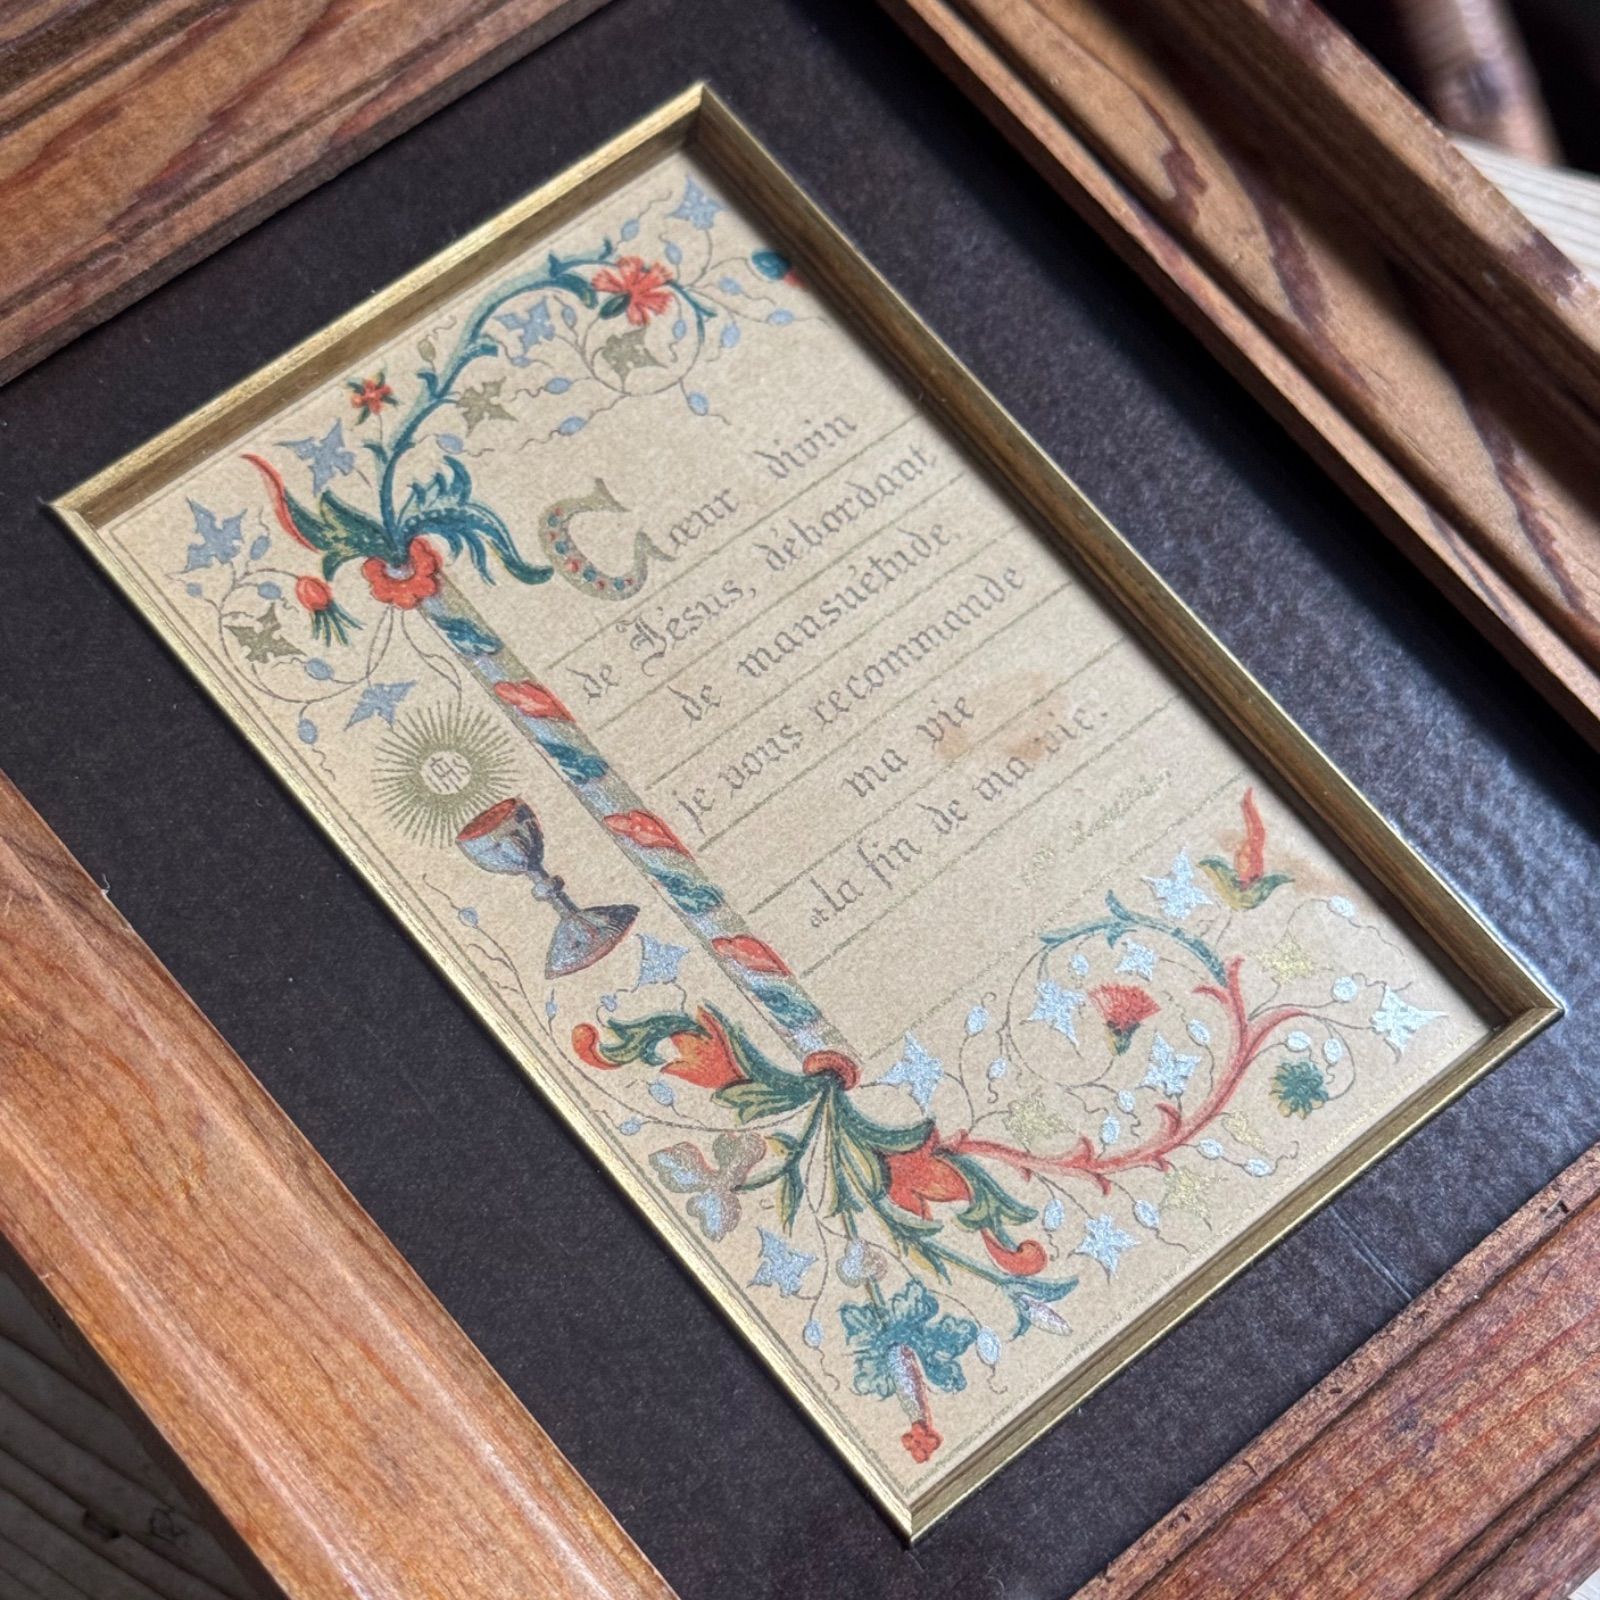 Cœur divin
de Jésus, débordant
de mansuétude,
je vous recommande
ma vie
et la fin de ma vie.
IHS